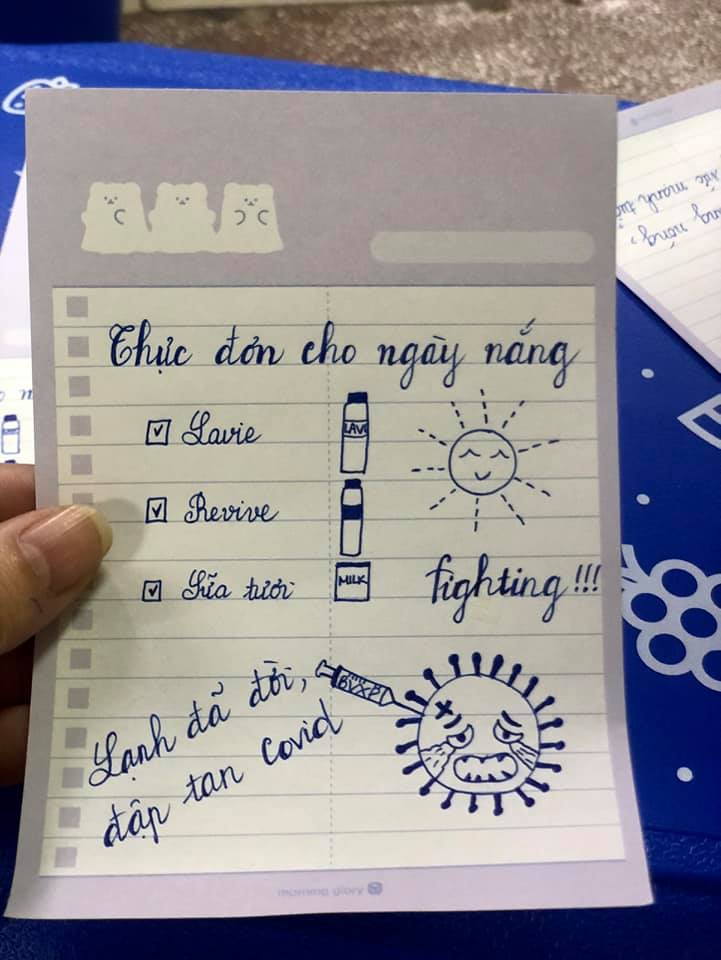 Thực đơn cho ngày nắng
Lavie
LAVI
Revive
Sữa tươi
MILK
fighting!!!
Lạnh đã đời,
đập tan covid
BVXP
morning glory